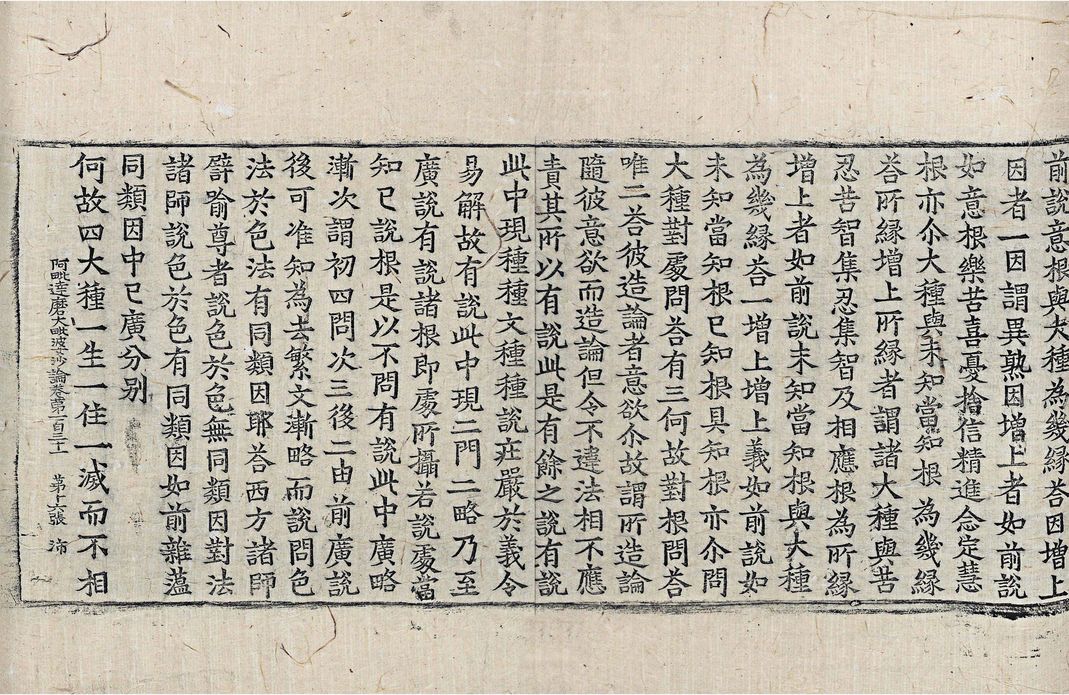 前說意根與大種為幾緣荅因增上
因者一因謂異熟因增上者如前說
如意根樂苦喜憂捨信精進念定慧
根亦尒大種與未知當知根為幾緣
荅所緣增上所緣者謂諸大種與苦
忍苦智集忍集智及相應根為所緣
增上者如前說未知當知根與大種
為幾緣荅一增上增上義如前說如
未知當知根已知根具知根亦尒問
大種對處問荅有三何故對根問荅
唯二荅彼造論者意欲尒故謂所造論
隨彼意欲而造論但令不違法相不應
責其所以有說此是有餘之說有說
此中現種種文種種說莊嚴於義令
易解故有說此中現二門二略乃至
廣說有說諸根即處所攝若說處當
知已說根是以不問有說此中廣略
漸次謂初四問次三後二由前廣說
後可准知為去繁文漸略而說問色
法於色法有同類因耶荅西方諸師
譬喻尊者說色於色無同類因對法
諸師說色於色有同類因如前雜蘊
同類因中已廣分别
何故四大種一生一住一滅而不相
阿毗達磨大毗波沙論卷第一百三十一 第十六張 沛